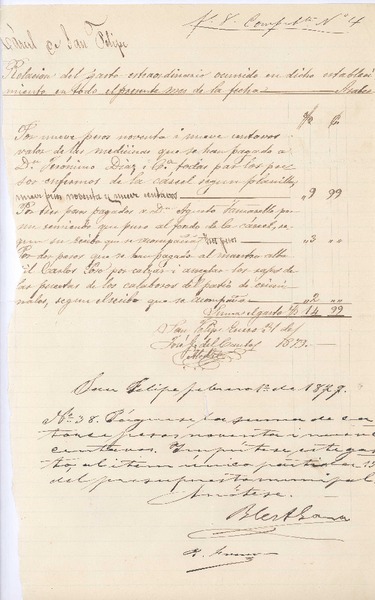 Cárcel de San Felipe
Relacion del gasto extraordinario ocurrido en dicho estableci
miento en todo el presente mes de la fecha
Por nueve pesos noventa i nueve centavos
valor de las medicinas que se han pagado a
Dn. Jerónimo Diaz i Ca. todas para los pre
sos enfermos de la carcel segun planilla
nueve pesos noventa y nueve centavos " 9 99
Por tres pesos pagados a Dn. Agusto
por
un que puso al fondo de la carcel, se
gun su recibo que se acompaña tres pesos " 3 "
Por dos pesos que se han pagado al maestro alba
ñil Carlos Toro por calzar i arreglar las
de las puertas de los calabozos del patio de crimi
nales, segun el recibo que se acompaña " 2 "
Suma el gasto $ 14 99
San Felipe Enero 31 de
José J. del Canto 1879
San Felipe febrero 1o. de 1879.
No. 38. Páguese la suma de ca
torce pesos noventa i nueve
centavos. Impútese este gas
to, al item único partida 13
del presupuesto municipal
Anótese.